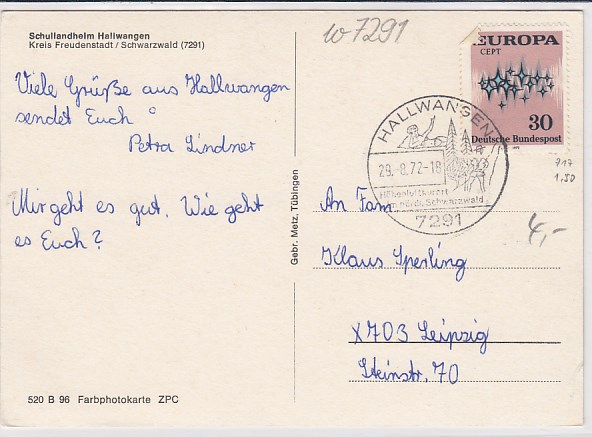 Schullandheim Hallwangen
Kreis Freudenstadt / Schwarzwald (7291)
W 7291
EUROPA
CEPT
30
Deutsche Bundespost
HALLWANGEN
29.-8.72-18
Höhenluftkurort
im nördl. Schwarzwald
7291
717
1,50
4,-
Viele Grüße aus Hallwangen
sendet Euch
Petra Lindner
Mir geht es gut. Wie geht
es Euch?
Gebr. Metz, Tübingen
An Fam.
Klaus Sperling
X703 Leipzig
Steinstr. 70
520 B 96 Farbphotokarte ZPC